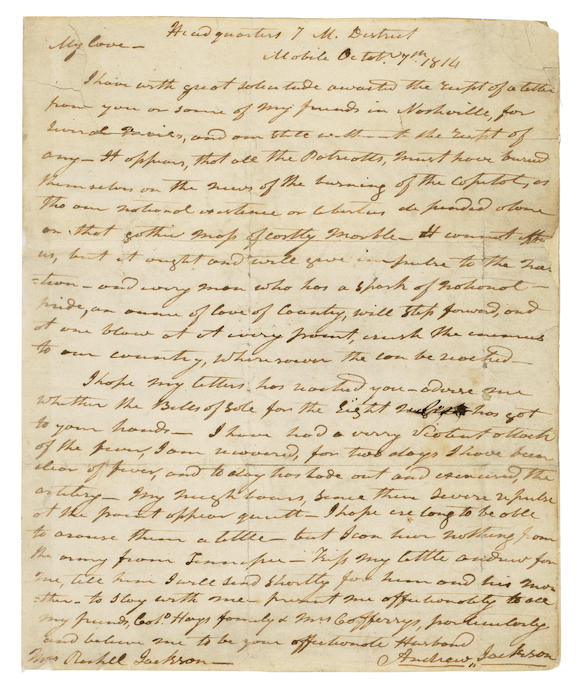 Headquarters 7 M. District
My love— Mobile Octob. 7th 1814
I have with great solicitude awaited the recpt of a letter
from you or some of my friends in Nashville, for
several and am still without the recpt of
any— It appears, that all the Patriotts, must have buried
themselves on the news of the burning of the Capitol, as
tho our national existence or liberties depended alone
on that gothic mass of costly marble— It cannot affect
us, but it ought and will give impulse to the na-
tion— and every man who has a spark of national
pride, an ounce of love of Country, will step forward, and
at one blow at every point, crush the enemies
to our country, wheresoever the can be reached—
I hope my letters has reached you— advise me
whether the Bills of sale for the Eight has got
to your hands— I have had a verry violent attack
of the fever, I am recovered, for two days I have been
clear of fever, and today has rode out and exercised, the
artilery— My neighbours, since there severe repulse
at the point appear quiett— I hope ere long to be able
to arouse them a little— but I can hear nothing from
the army from Tennessee— Kiss my little andrew for
me, tell him I will send shortly for him and his mo-
ther— to stay with me— present me affectionately to all
my friends, Colo. Hays family & Mrs Cofferys, particularly
and believe me to be your affectionate Husband
Mrs Rachel Jackson— Andrew Jackson